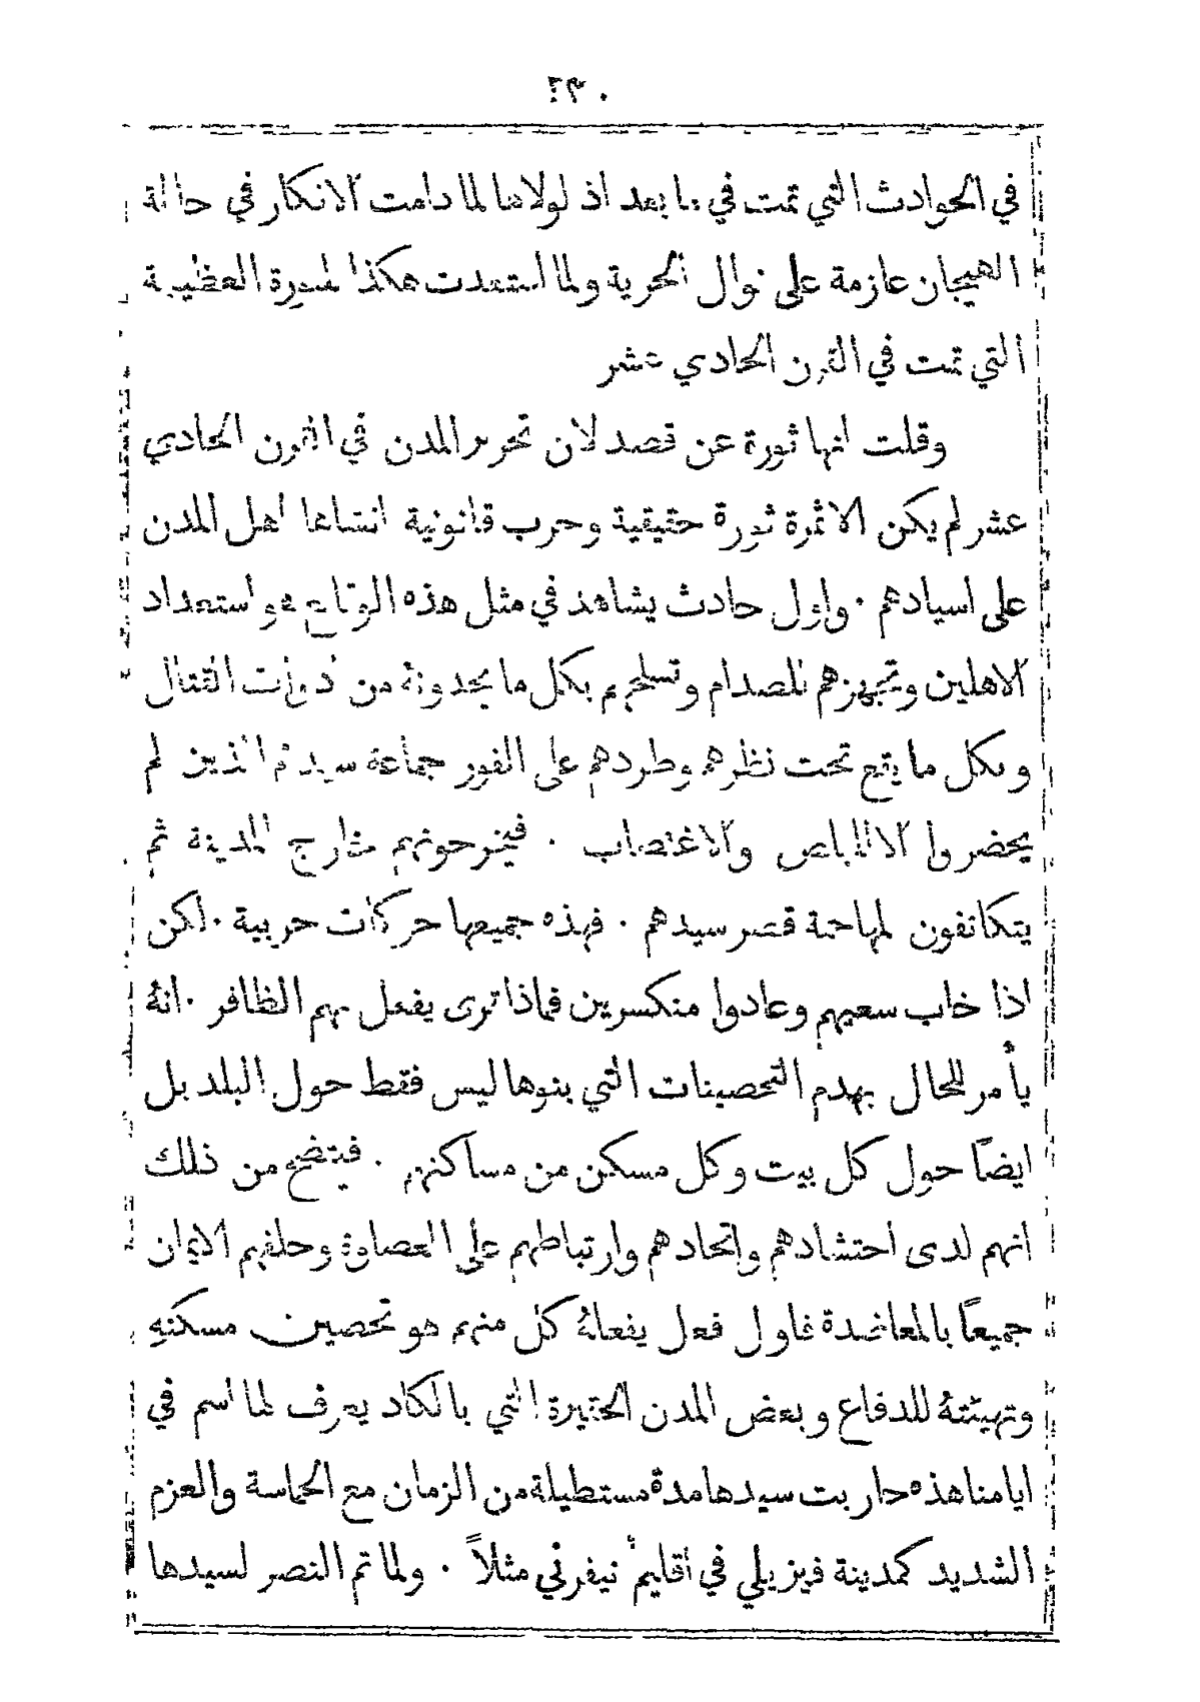 ٢٣٠
في الحوادث التي تمت في ما بعد اذ لولاها لما دامت الافكار في حالة
الهيجان عازمة على نوال الحرية ولما استعدت هكذا لثورة العظيمة
التي تمت في القرن الحادي عشر
وقلت انها ثورة عن قصد لان تحرير المدن في القرن الحادي
عشر لم يكن الا ثمرة ثورة حقيقية وحرب قانونية انشاها اهل المدن
على اسيادهم ٠ واول حادث يشاهد في مثل هذه الوقايع هو استعداد
الاهلين وتجهيزهم للصدام وتسلحهم بكل ما يجدونهُ من ادوات القتال
وبكل ما يقع تحت نظرهم وطردهم على الفور جماعة سيدهم الذين لم
يحضروا الا والاغتصاب ٠ فيخرجونهم خارج المدينة ثم
يتكاتفون لمهاجمة قصر سيدهم ٠ فهذه جميعها حركات حربية ٠ لكن
اذا خاب سعيهم وعادوا منكسرين فماذا ترى يفعل بهم الظافر ٠ انهُ
يأمر للحال بهدم التحصينات التي بنوها ليس فقط حول البلد بل
ايضًا حول كل بيت وكل مسكن من مساكنهم ٠ فيتضح من ذلك
انهم لدى احتشادهم واتحادهم وارتباطهم على العصاوة وحلفهم الايمان
جميعًا بالمعاضدة فاول فعل يفعلهُ كل منهم هو تحصين مسكنهِ
وتهيئتهُ للدفاع وبعض المدن الحقيرة التي بالكاد يعرف لها اسم في
ايامنا هذه حاربت سيدها مدة مستطيلة من الزمان مع الحماسة والعزم
الشديد كمدينة فيزيلي في اقليم نيفرني مثلاً ٠ ولما تم النصر لسيدها